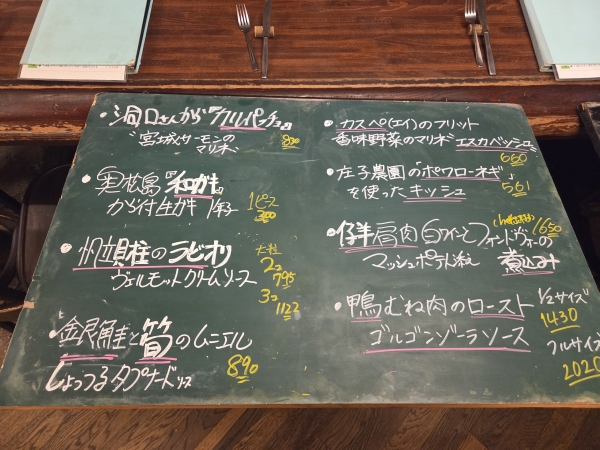 ・洞口さんが『カルパッチョ』
"宮城サーモンの
マリネ" 800
・奥松島『和がき』
から付生がき 1年子 1ピース
300
・帆立貝柱のラビオリ 大粒
ヴェルモットクリームソース 2コ
795
3コ
1122
・金目鯛と筍のムニエル
しょっつるタプナードソース 890
・カスペ(エイ)のフリット
香味野菜のマリネ エスカベッシュ
660
・庄子農園の「ポワローネギ」
を使ったキッシュ 561
・仔羊肩肉白ワインとフォンドヴォーの 1650
マッシュポテト添え 煮込み
・鴨むね肉のロースト 1/2サイズ
ゴルゴンゾーラソース 1430
フルサイズ
2020